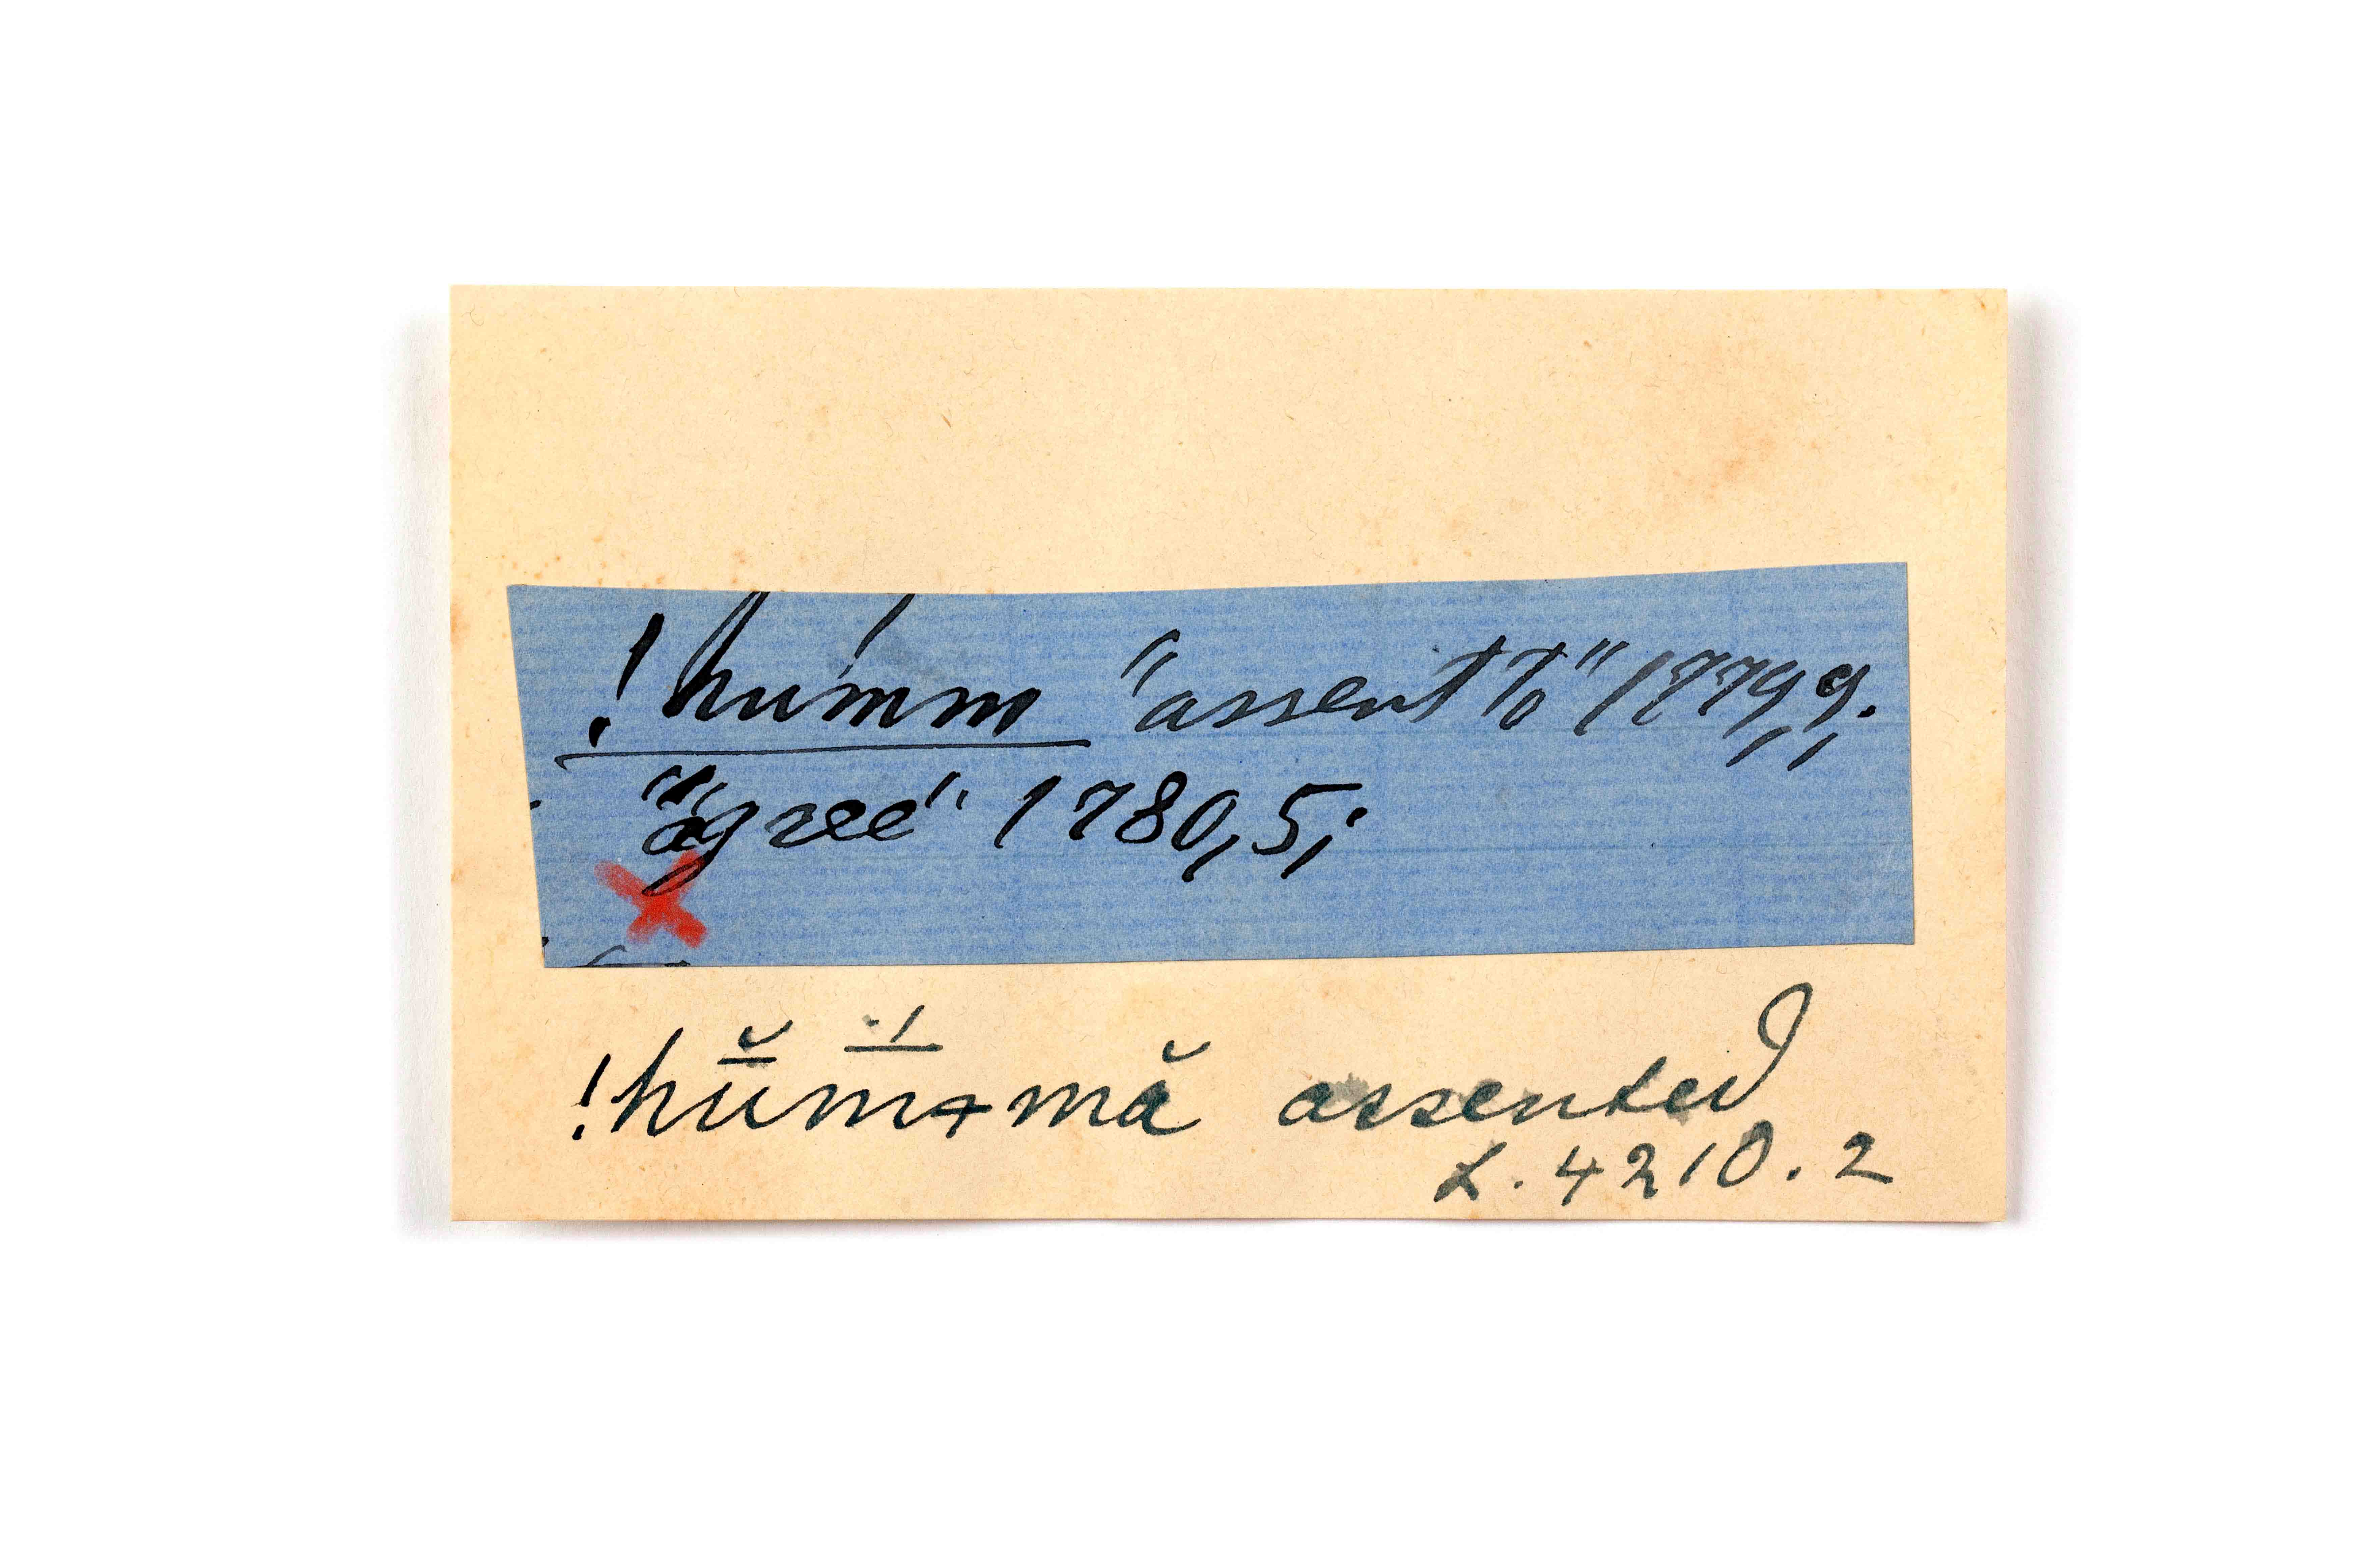 !humm "assent to" 1779,9.
"agree" 1780,5;
!hŭ̄m+mă assented
L. 4210. 2